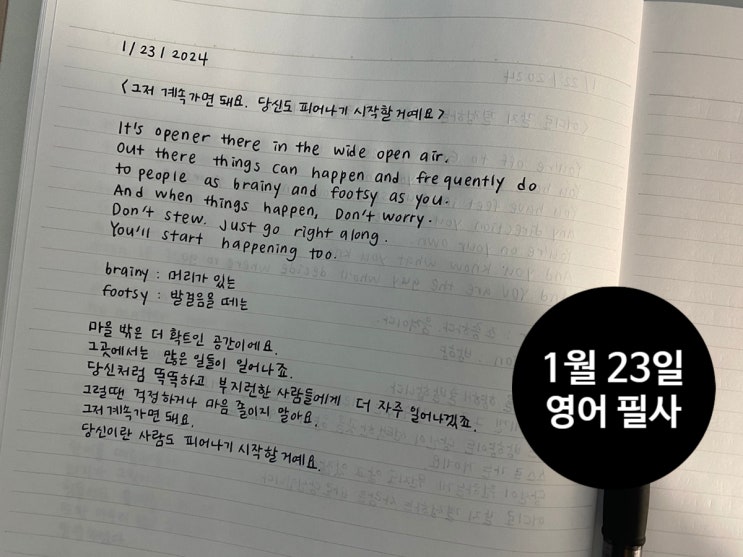 1/23/2024
<그저 계속가면 돼요. 당신도 피어나기 시작할거예요>
It's opener there in the wide open air.
Out there things can happen and frequently do
to people as brainy and footsy as you.
And when things happen, Don't worry.
Don't stew. Just go right along.
You'll start happening too.
brainy : 머리가 있는
footsy : 발걸음을 떼는
마을 밖은 더 확트인 공간이에요.
그곳에서는 많은 일들이 일어나죠.
당신처럼 똑똑하고 부지런한 사람들에게 더 자주 일어나겠죠.
그럴땐 걱정하거나 마음 졸이지 말아요.
그저 계속가면 돼요.
당신이란 사람도 피어나기 시작할거예요.
1월 23일
영어 필사